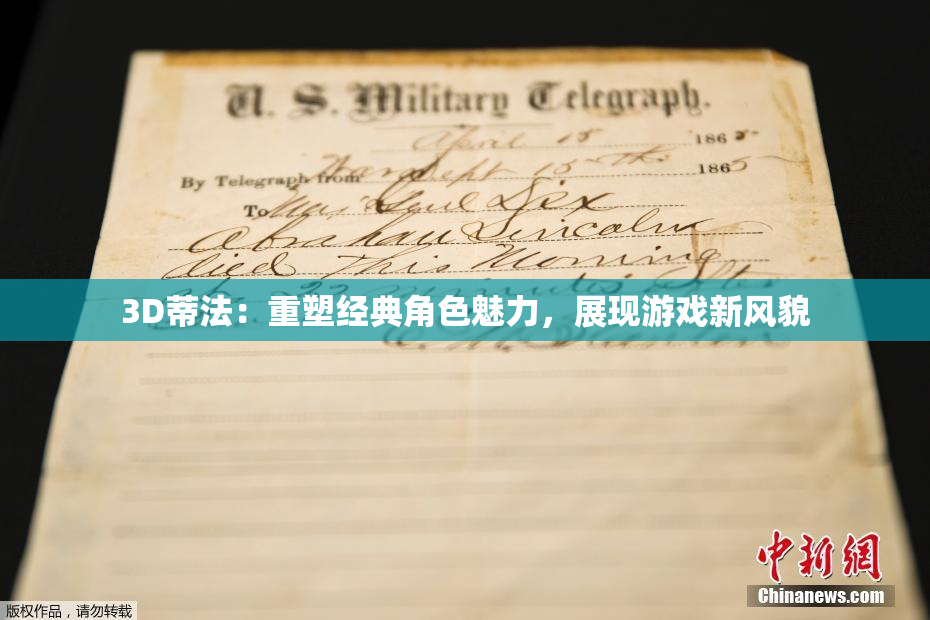 U. S. Military Telegraph.
April 15 1865
By Telegraph from War Dept 15th 1865
To Maj Genl Dix
Abraham Lincoln
died This Morning
at 22 minutes after
3D蒂法：重塑经典角色魅力，展现游戏新风貌
E. M. Stanton
中新网
Chinanews.com
版权作品，请勿转载